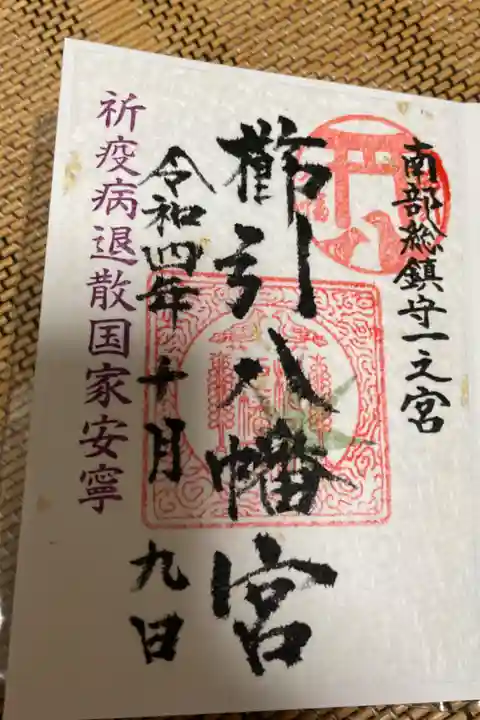 南部総鎮守一之宮
櫛引八幡宮
令和四年十月九日
祈疫病退散国家安寧